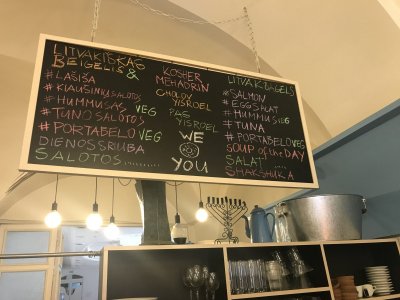 LITVAKIŠKAS
BEIGELIS &
#LAŠIŠA
#KIAUŠINIŲ SALOTOS
#HUMMUSAS VEG
#TUNO SALOTOS
#PORTABELO VEG
DIENOS SRIUBA
SALOTOS
KOSHER
MEHADRIN
CHOLOV
YISROEL
PAS
YISROEL
WE
YOU
LITVAK BAGELS
#SALMON
#EGG SALAT
#HUMMUS VEG
#TUNA
#PORTABELO VEG
SOUP of the DAY
SALAT
SHAKSHUKA